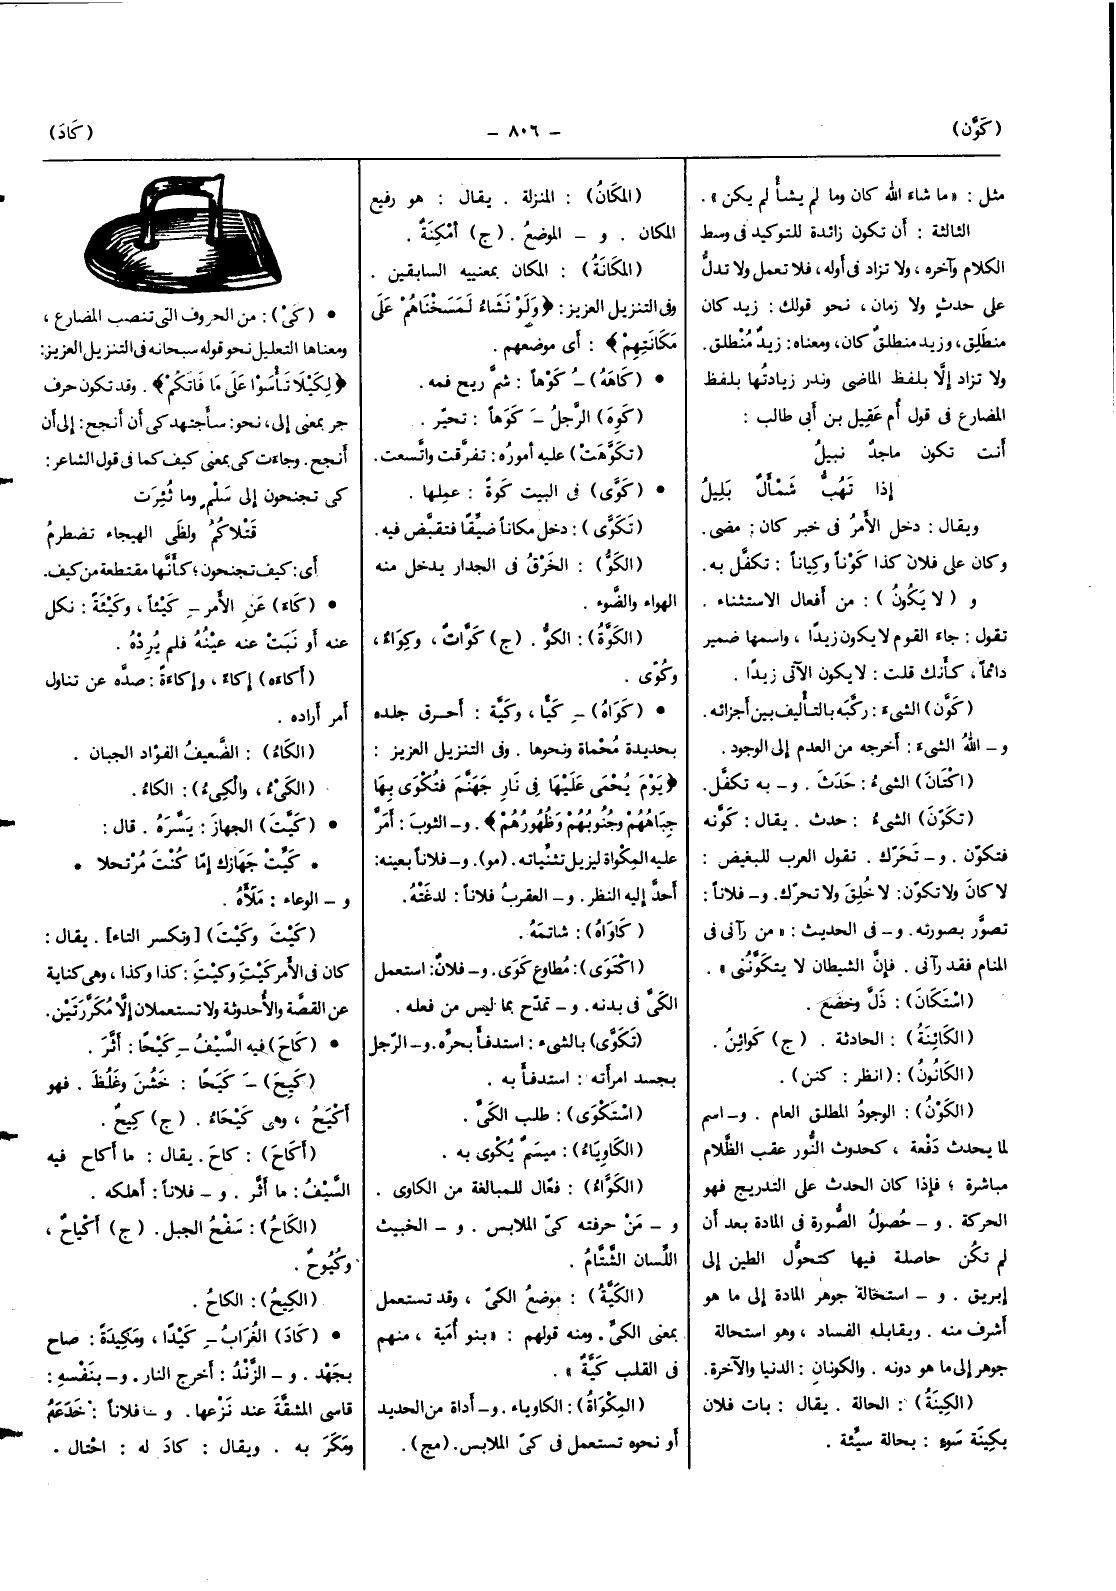 (كَوَّن)
– ٨٠٦ –
(كَادَ)
مثل : «ما شاء الله كان وما لم يشأْ لم يكن» .
الثالثة : أن تكون زائدة للتوكيد فى وسط
الكلام وآخره ، ولا تزاد فى أوله ، فلا تعمل ولا تدلُّ
على حدثٍ ولا زمان ، نحو قولك : زيد كان
منطلِق ، وزيد منطلقٌ كان ، ومعناه : زيدٌ مُنْطلق .
ولا تزاد إلَّا بلفظ الماضى وندر زيادتُها بلفظ
المضارع فى قول أم عَقِيل بن أبى طالب :
أنت تكون ماجدٌ نبيلُ
إذا تَهُبُّ شَمْأَلٌ بَلِيلُ
ويقال : دخل الأمرُ فى خبر كان : مضى .
وكان على فلان كذا كَوْناً وكِياناً : تكفَّل به .
و ( لا يَكُونُ ) : من أفعال الاستثناء .
تقول : جاء القوم لا يكون زيدًا ، واسمها ضمير
دائماً ، كأنك قلت : لا يكون الآتى زيدًا .
(كَوَّن) الشىءَ : ركَّبَه بالتأليف بين أجزائه .
و – اللهُ الشىءَ : أخرجه من العدم إلى الوجود .
(اكْتَانَ) الشىءُ : حَدَثَ . و – به تكفَّل .
(تكَوّنَ) الشىءُ : حدث . يقال : كوَّنه
فتكوّن . و – تَحَرّك . تقول العرب للبغيض :
لا كانَ ولا تكوّن : لا خُلِقَ ولا تحرّك . و – فلاناً :
تصوَّر بصورته . و – فى الحديث : « من رآنى فى
المنام فقد رآنى . فإنَّ الشيطان لا يتكوَّنُنى » .
(اسْتَكَانَ) : ذَلَّ وخضع .
(الكَائِنَةُ) : الحادثة . (ج) كَوائِنُ .
(الكَانُونُ) : (انظر : كنن) .
(الكَوْنُ) : الوجودُ المطلق العام . و – اسم
لما يحدث دَفْعة ، كحدوث النُّور عقب الظَّلام
مباشرة ؛ فإذا كان الحدث على التدريج فهو
الحركة . و – حُصولُ الصُّورة فى المادة بعد أن
لم تكُن حاصلة فيها كتحوُّل الطين إلى
إبريق . و – استحالة جوهر المادة إلى ما هو
أشرف منه . ويقابله الفساد ، وهو استحالة
جوهر إلى ما هو دونه . والكونانِ : الدنيا والآخرة .
(الكِينَةُ) : الحالة . يقال : بات فلان
بِكِينَة سَوءٍ : بحالة سيِّئة .
(المَكَانُ) : المنزلة . يقال : هو رفيع
المكان . و – الموضعُ . (ج) أَمْكِنَةٌ .
(المَكَانَةُ) : المكان بمعنييه السابقين .
وفى التنزيل العزيز : ﴿ وَلَوْ نَشَاءُ لَمَسَخْنَاهُمْ عَلَى
مَكَانَتِهِمْ ﴾ : أى موضعهم .
• (كَاهَهُ) ـُ كَوْهاً : شمَّ ريح فمه .
(كَوِهَ) الرَّجلُ ـَ كَوَهاً : تحيّر .
(تكَوَّهَتْ) عليه أمورُه : تفرَّقت واتَّسعت .
• (كَوَّى) فى البيت كَوةً : عمِلها .
(تَكَوَّى) : دخل مكاناً ضيِّقًا فتقبَّض فيه .
(الكَوُّ) : الخَرْقُ فى الجدار يدخل منه
الهواء والضَّوء .
(الكَوَّةُ) : الكوُّ . (ج) كَوَّاتٌ ، وكِوَاءٌ ،
وكُوًى .
• (كَوَاهُ) ـِ كَيًّا ، وكَيَّة : أحرق جلده
بحديدة مُحْماة ونحوها . وفى التنزيل العزيز :
﴿ يَوْمَ يُحْمَى عَلَيْهَا فِى نَارِ جَهَنَّمَ فَتُكْوَى بِهَا
جِبَاهُهُمْ وجُنُوبُهُمْ وَظُهُورُهُمْ ﴾ . و – الثوبَ : أمَرَّ
عليه المِكْواة ليزيل تثنِّياته . (مو) . و – فلاناً بعينه :
أحدَّ إليه النظر . و – العقربُ فلاناً : لدغَتْهُ .
(كَاوَاهُ) : شاتمَهُ .
(اكْتَوَى) : مُطاوع كَوَى . و – فلانٌ : استعمل
الكَىَّ فى بدنه . و – تمدّح بما ليس من فعله .
(تَكَوَّى) بالشىء : استدفأ بحرِّه . و – الرَّجل
بجسد امرأته : استدفأ به .
(اسْتَكْوَى) : طلب الكَىَّ .
(الكَاوِيَاءُ) : مِيسَمٌ يُكْوى به .
(الكَوَّاءُ) : فعّال للمبالغة من الكاوى .
و – مَنْ حرفته كىّ الملابس . و – الخبيث
اللِّسان الشَّتَّامُ .
(الكَيَّةُ) : موضعُ الكىّ ، وقد تستعمل
بمعنى الكىّ . ومنه قولهم : «بنو أُمَية ، منهم
فى القلب كَيَّةٌ » .
(المِكْوَاةُ) : الكاوياء . و – أداة من الحديد
أو نحوه تستعمل فى كىّ الملابس . (مج) .
• (كَىْ) : من الحروف التى تنصب المضارع ،
ومعناها التعليل نحو قوله سبحانه فى التنزيل العزيز :
﴿ لِكَيْلَا تَأْسَوْا عَلَى مَا فَاتَكُمْ ﴾ . وقد تكون حرف
جر بمعنى إلى ، نحو : سأجتهد كى أن أنجح : إلى أن
أنجح . وجاءت كى بمعنى كيف كما فى قول الشاعر :
كى تجنحون إلى سَلْمٍ وما ثُئِرَت
قَتْلاكُمُ ولظَى الهيجاء تضطرمُ
أى : كيف تجنحون ؛ كأنَّها مقتطعة من كيف .
• (كَاءَ) عَنِ الأمر ـِ كَيْئاً ، وكَيْئَةً : نكل
عنه أو نَبَتْ عنه عينُهُ فلم يُرِدْهُ .
(أكاءَه) إكاءً ، وإكاءَةً : صدَّه عن تناول
أمر أراده .
(الكَاءُ) : الضَّعيفُ الفؤاد الجبان .
(الكَىْءُ ، والْكِىءُ) : الكاءُ .
• (كَيَّتَ) الجهازَ : يَسَّرَهُ . قال :
• كَيِّتْ جَهَازَك إمّا كُنْتَ مُرْتحلا •
و – الوعاء : مَلَأَهُ .
(كَيْتَ وكَيْتَ) [وتكسر التاء] . يقال :
كان فى الأمر كَيْتِ وكيْتِ : كذا وكذا ، وهى كناية
عن القصَّة والأُحدوثة ولا تستعملان إلَّا مُكَرَّرَتَيْن .
• (كَاحَ) فيه السَّيْفُ ـِ كَيْحًا : أثَّرَ .
(كَيِحَ) ـَ كَيَحًا : خَشُنَ وغَلُظَ . فهو
أكْيَحُ ، وهى كَيْحَاءُ . (ج) كِيحٌ .
(أكَاحَ) : كاحَ . يقال : ما أكاح فيه
السَّيْفُ : ما أثَّر . و – فلاناً : أهلكه .
(الكَاحُ) : سَفْحُ الجبل . (ج) أكْيَاحٌ ،
وكُيُوحٌ .
(الكِيحُ) : الكاحُ .
• (كَادَ) الغُرَابُ ـِ كَيْدًا ، ومَكِيدَةً : صاح
بجَهْد . و – الزَّنْدُ : أخرج النار . و – بنَفْسِهِ :
قاسى المشقَّةَ عند نَزْعها . و – فلاناً : خَدَعَهُ
ومَكَرَ به . ويقال : كادَ له : احْتال .